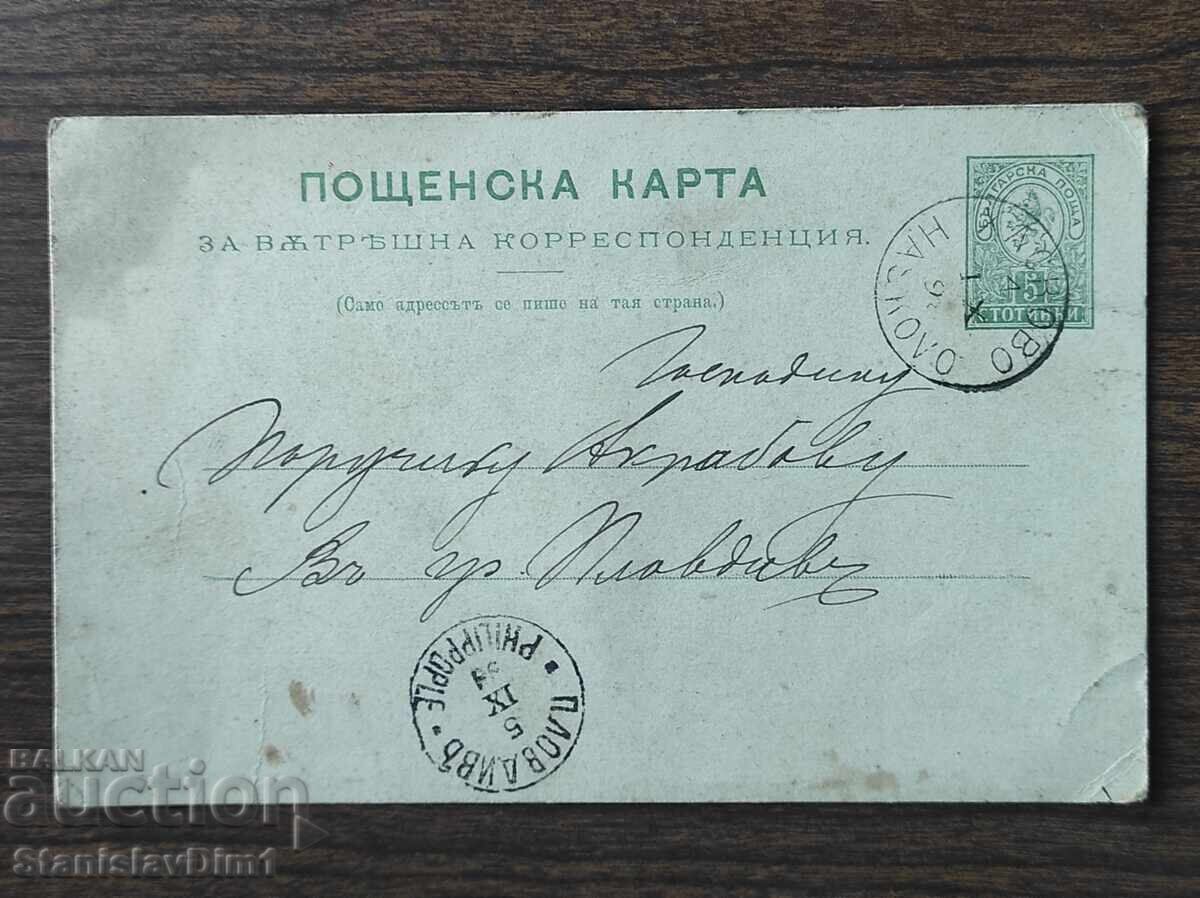 ПОЩЕНСКА КАРТА
ЗА ВѪТРѢШНА КОРРЕСПОНДЕНЦИЯ.
(Само адрессътъ се пише на тая страна.)
БЪЛГАРСКА ПОЩА
5
СТОТИНКИ
ХАСКОВО
HASKOVO
IX
Господину
Поручику Акрабову
Въ гр. Пловдивъ
ПЛОВДИВЪ
PHILIPPOPLE
5
IX
BALKAN
auction
StanislavDim1